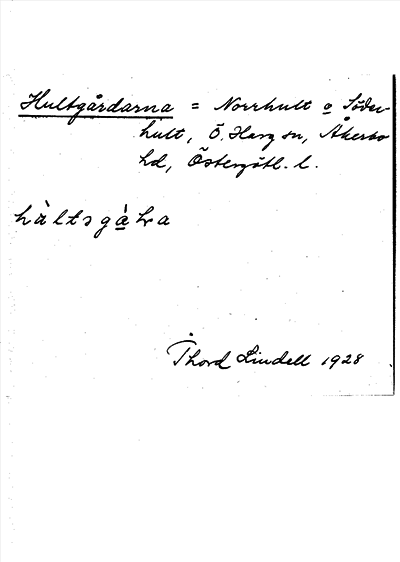 Hultgårdarna = Norrhult o Söder-
hult, Ö. Harg sn, Åkerbo
hd, Östergötl. l.
Thord Lindell 1928